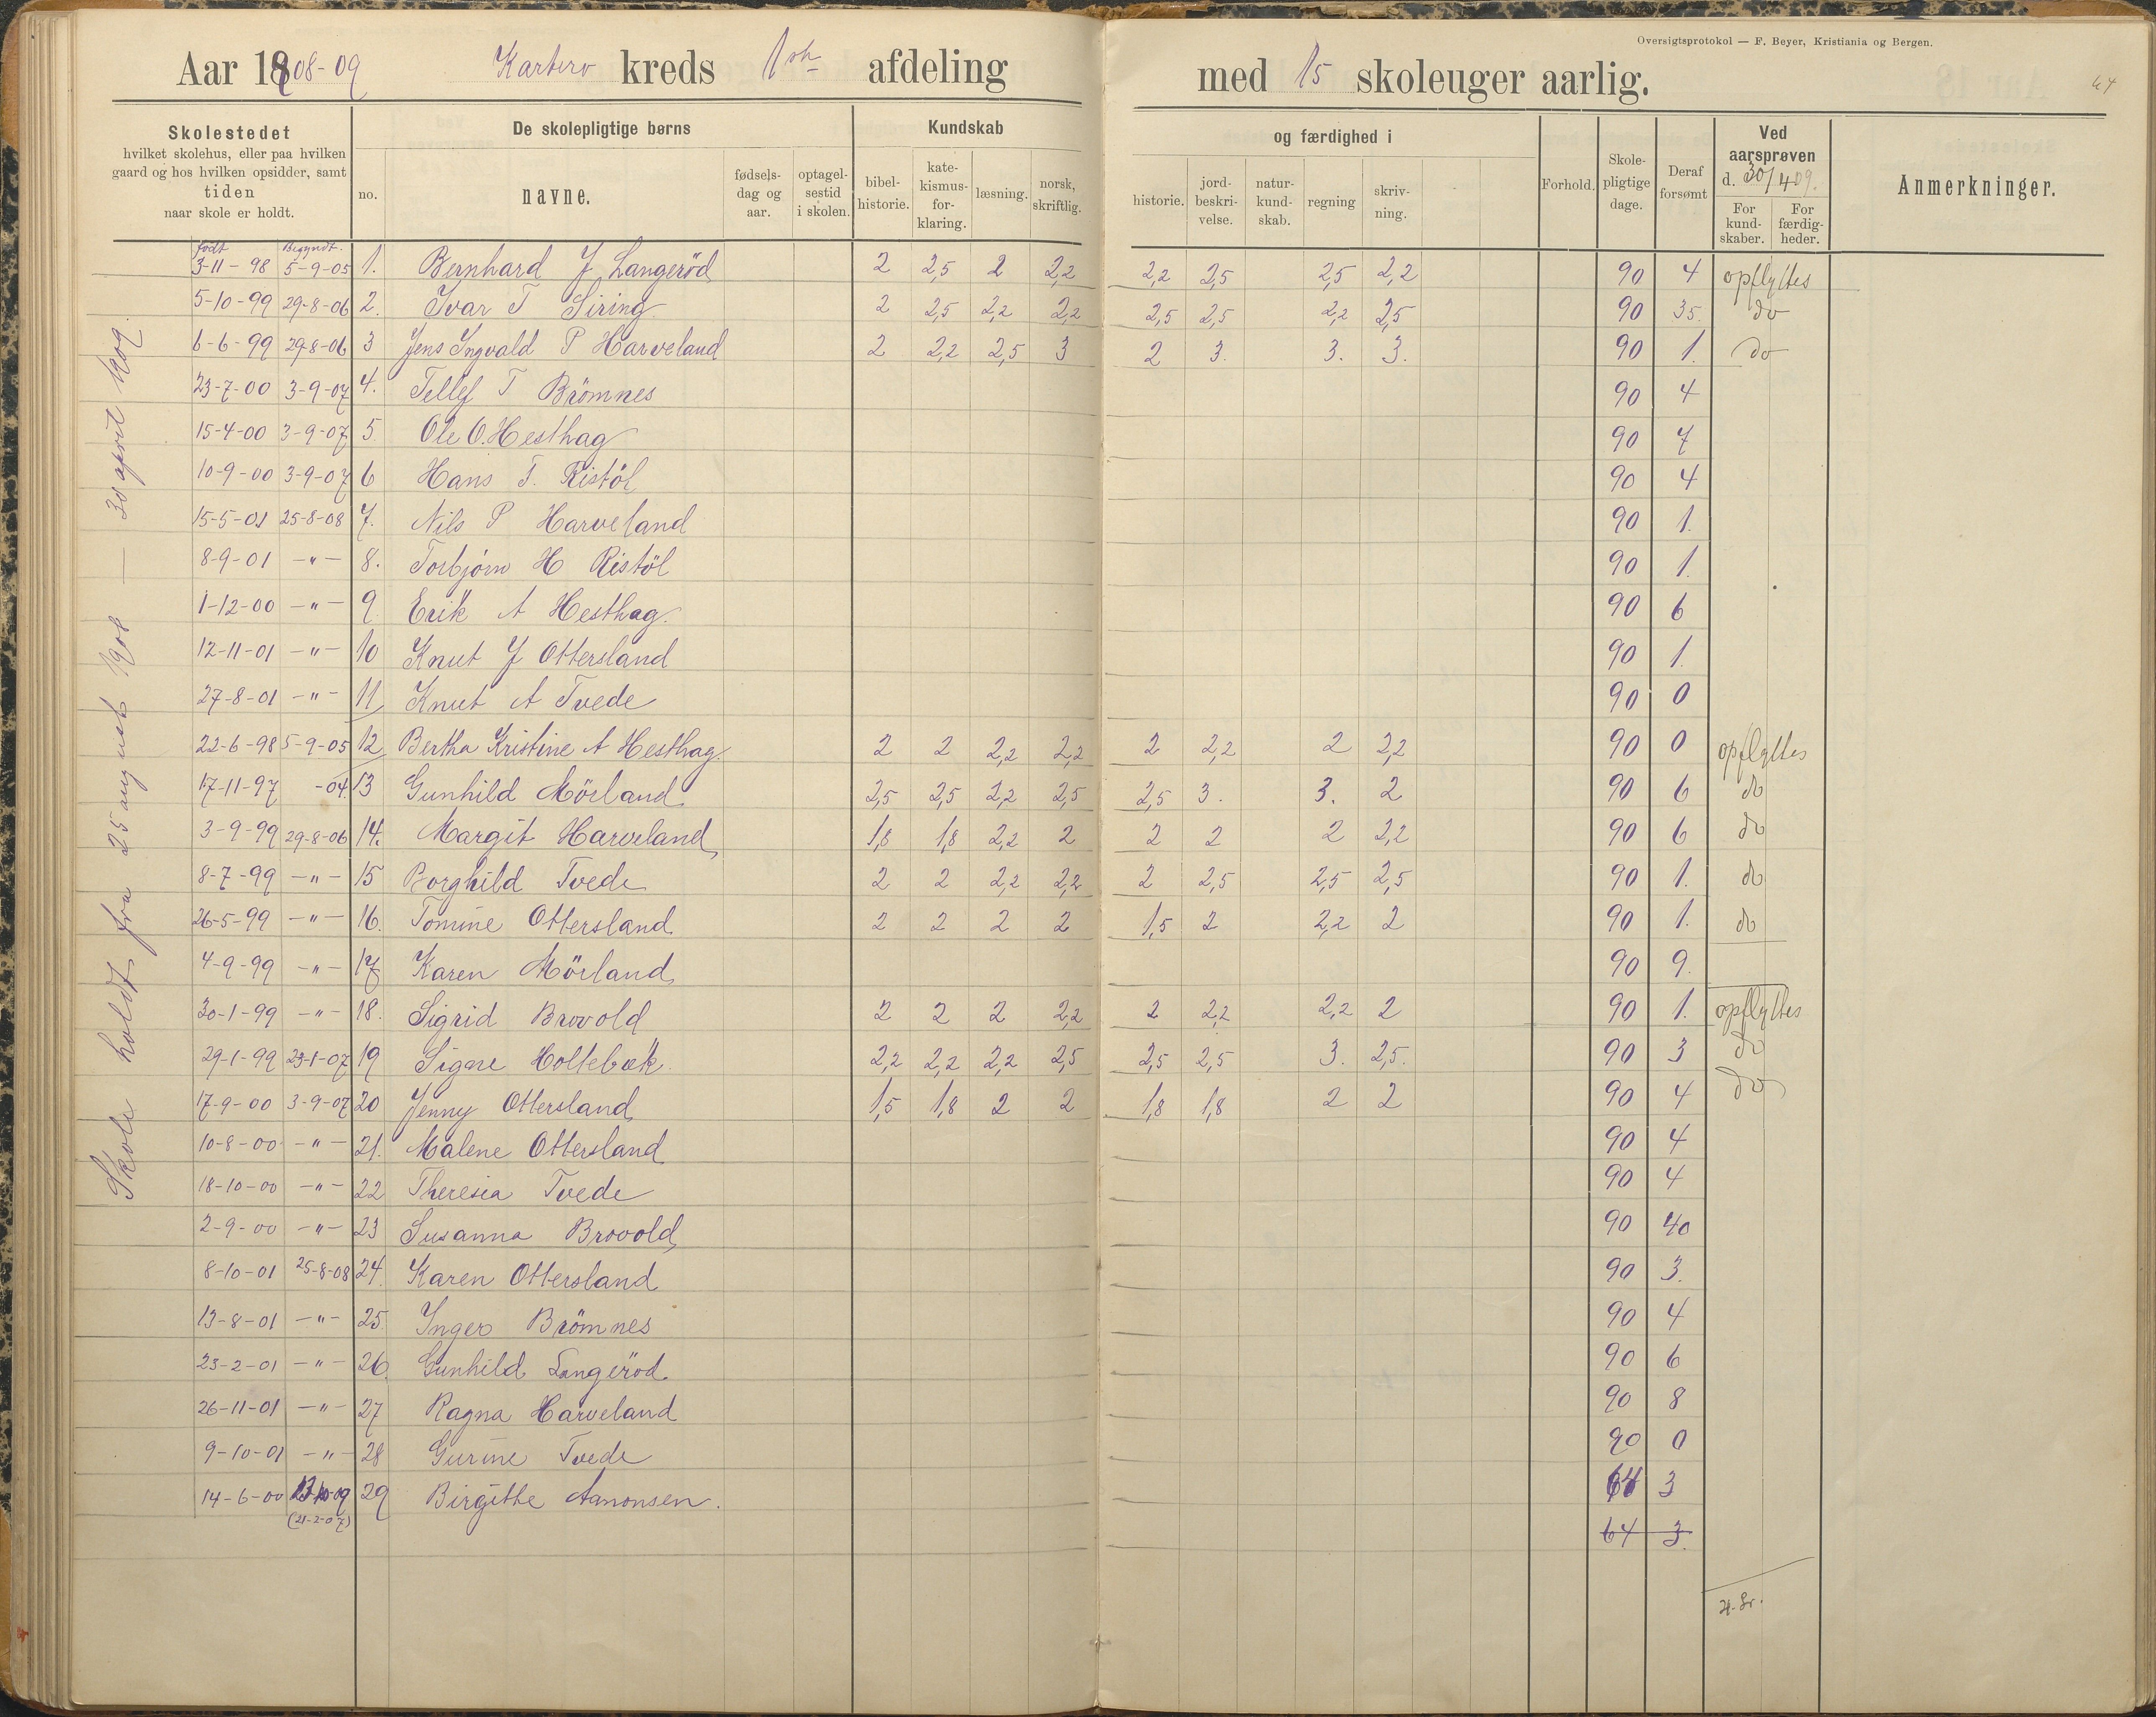 Oversigtsprotokol — F. Beyer, Kristiania og Bergen.
64
Aar 1908-09 kreds 1ste afdeling med 15 skoleuger aarlig.
Skolestedet
hvilket skolehus, eller paa hvilken
gaard og hos hvilken opsidder, samt
tiden
naar skole er holdt.
De skolepligtige børns
no.
navne.
fødsels-
dag og
aar.
optagel-
sestid
i skolen.
Kundskab
bibel-
historie.
kate-
kismus-
for-
klaring.
læsning.
norsk,
skriftlig.
og færdighed i
historie.
jord-
beskri-
velse.
natur-
kund-
skab.
regning
skriv-
ning.
Forhold.
Skole-
pligtige
dage.
Deraf
forsømt
Ved
aarsprøven
d. 30/4 09.
For
kund-
skaber.
For
færdig-
heder.
Anmerkninger.
Skole holdt fra 25 august 1908 — 30 april 1909.
født Begyndt.
3-11-98 5-9-05 1. Bernhard J Langeröd 2 2,5 2 2,2 2,2 2,5 2,5 2,2 90 4 opflyttes
5-10-99 29-8-06 2. Ivar T Siring 2 2,5 2,2 2,2 2,5 2,5 2,2 2,5 90 35. do
6-6-99 29-8-06 3 Jens Ingvald P Harveland 2 2,2 2,5 3 2 3. 3. 3. 90 1. do
23-7-00 3-9-07 4. Tellef T Brömnes 90 4
15-4-00 3-9-07 5. Ole O. Hesthag 90 7
10-9-00 3-9-07 6 Hans T. Ristöl 90 4
15-5-01 25-8-08 7. Nils P Harveland 90 1.
8-9-01 -"- 8. Torbjörn H Ristöl 90 1.
1-12-00 -"- 9. Erik A Hesthag. 90 6
12-11-01 -"- 10 Knut J Ottersland 90 1.
27-8-01 -"- 11 Knut A Tvede 90 0
22-6-98 5-9-05 12 Bertha Kristine A Hesthag. 2 2 2,2 2,2 2 2,2 2 2,2 90 0 opflyttes
17-11-97 -04. 13 Gunhild Mörland 2,5 2,5 2,2 2,5 2,5 3. 3. 2 90 6 do
3-9-99 29-8-06 14. Margit Harveland 1,8 1,8 2,2 2 2 2 2 2,2 90 6 do
8-7-99 -"- 15 Borghild Tvede 2 2 2,2 2,2 2 2,5 2,5 2,5 90 1. do
26-5-99 -"- 16. Tomine Ottersland 2 2 2 2 1,5 2 2,2 2 90 1. do
4-9-99 -"- 17 Karen Mörland 90 9.
30-1-99 -"- 18. Sigrid Brovold 2 2 2 2,2 2 2,2 2,2 2 90 1. opflyttes
29-1-99 23-1-07 19 Signe Holtebæk 2,2 2,2 2,2 2,5 2,5 2,5 3. 2,5. 90 3 do
17-9-00 3-9-07 20 Jenny Ottersland 1,5 1,8 2 2 1,8 1,8 2 2 90 4 do
10-8-00 -"- 21. Malene Ottersland 90 4
18-10-00 -"- 22 Theresia Tvede 90 4
2-9-00 -"- 23 Susanna Brovold 90 40
8-10-01 25-8-08 24. Karen Ottersland 90 3.
13-8-01 -"- 25. Inger Brömnes 90 4
23-2-01 -"- 26. Gunhild Langeröd 90 6
26-11-01 -"- 27 Ragna Harveland 90 8
9-10-01 -"- 28 Gurine Tvede 90 0
14-6-00 29 Birgitte Aanonsen. 64 3
(21-2-07)
64 3.